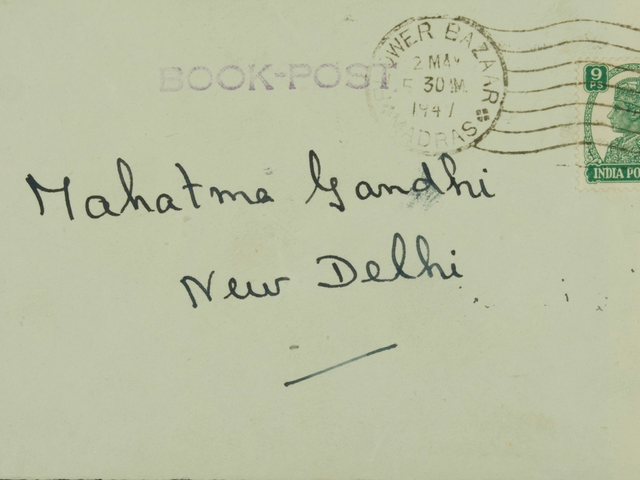 BOOK-POST
OWER BAZAAR
2 MAY
5 30 PM
1947
MADRAS
9
PS
INDIA PO
Mahatma Gandhi
New Delhi